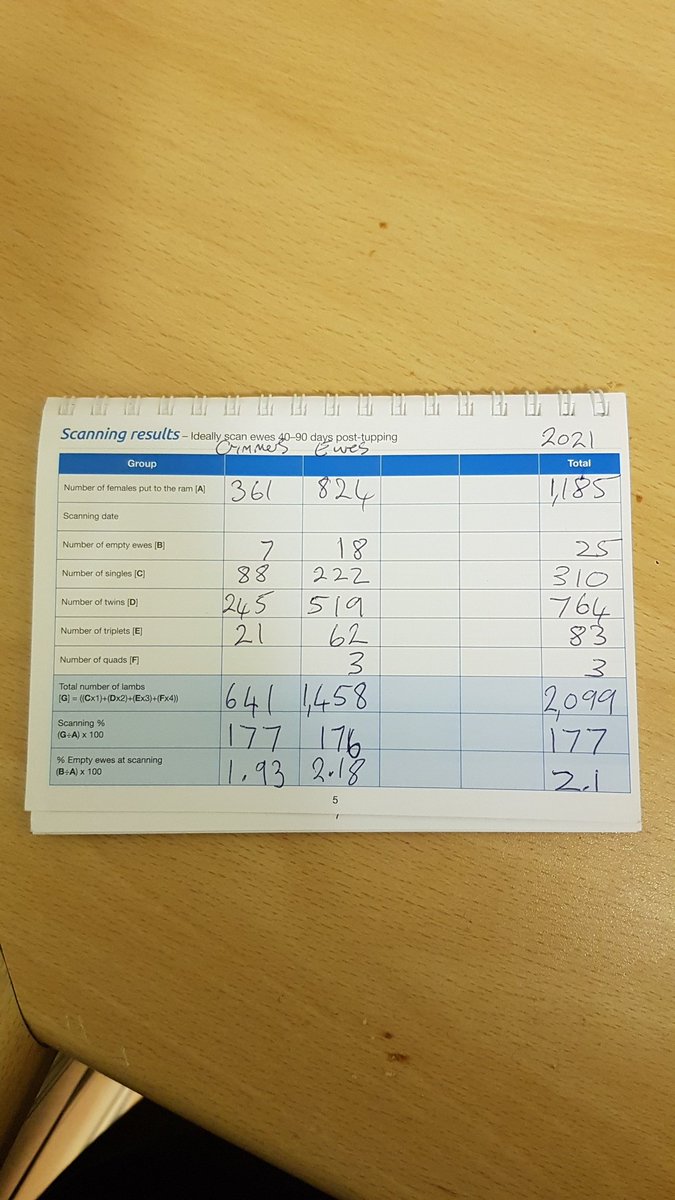 Scanning results – Ideally scan ewes 40–90 days post-tupping 2021
Gimmers Ewes
Group Total
Number of females put to the ram [A] 361 824 1,185
Scanning date
Number of empty ewes [B] 7 18 25
Number of singles [C] 88 222 310
Number of twins [D] 245 519 764
Number of triplets [E] 21 62 83
Number of quads [F] 3 3
Total number of lambs
[G] = ((Cx1)+(Dx2)+(Ex3)+(Fx4)) 641 1,458 2,099
Scanning %
(G÷A) x 100 177 176 177
% Empty ewes at scanning
(B÷A) x 100 1.93 2.18 2.1
5